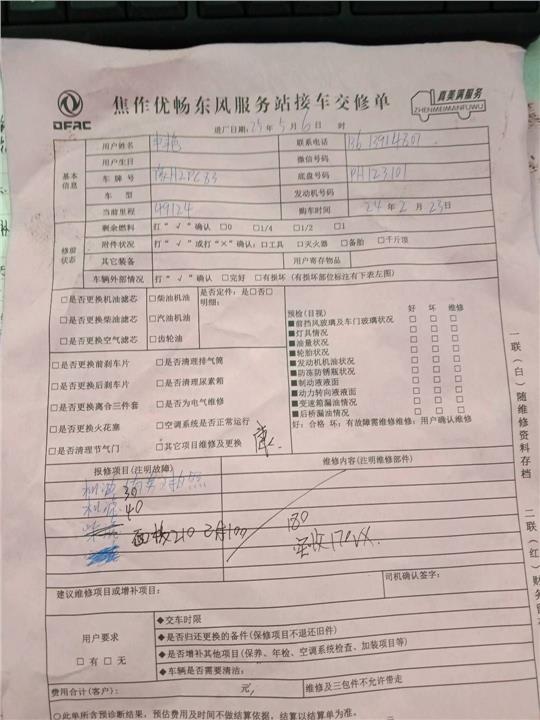 DFAC
焦作优畅东风服务站接车交修单
真美满服务
ZHENMEIMANFUWU
进厂日期: 25 年 5 月 6 日 时
基本信息
用户姓名 联系电话
用户生日 微信号码
车牌号 豫H2PC83 底盘号码 PH123101
车型 发动机号码
当前里程 49124 购车时间 24 年 2 月 23 日
修前状态
剩余燃料 打“√”确认 □0 □1/4 □1/2 □1
附件状况 打“√”或打“×”确认: □工具 □灭火器 □备胎 □千斤顶
其它装备 用户寄存物品
车辆外部情况 打“√”确认 □完好 □有损坏 (有损坏部位标注有下表左图)
□是否更换机油滤芯 □柴油机油 是否定件: 是□否□
□是否更换柴油滤芯 □汽油机油 明细:
□是否更换空气滤芯 □齿轮油
□是否更换前刹车片 □是否清理排气筒
□是否更换后刹车片 □是否清理尿素箱
□是否更换离合三件套 □是否为电气维修
□是否更换火花塞 □空调系统是否正常运行
□是否清理节气门 □其它项目维修及更换
预检(目视) 好 坏 维修
■前挡风玻璃及车门玻璃状况 □ □ □
■灯具情况 □ □ □
■油量状况 □ □ □
■轮胎状况 □ □ □
■发动机机油状况 □ □ □
■防冻防锈瓶状况 □ □ □
■制动液液面 □ □ □
■动力转向液液面 □ □ □
■变速箱漏油情况 □ □ □
■后桥漏油情况 □ □ □
好: 合格 坏: 有故障需维修维修: 用户确认维修
报修项目(注明故障) 维修内容(注明维修部件)
机滤 30
40
210 100 180
170
建议维修项目或增补项目: 司机确认签字:
用户要求
□有 □无
◆交车时限
◆是否归还更换的备件(保修项目不退还旧件)
◆是否增补其他项目(保养、年检、空调系统检查、加装项目等)
◆车辆是否需要清洁:
费用合计(客户): 元, 维修及三包件不允许带走
○此单所含预诊断结果, 预估费用及时间不做结算依据, 结算以结算单为准。
一联(白)随维修资料存档
二联(红)财务